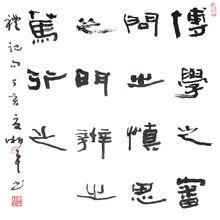 博學之審
問之慎思
之明辨之
篤行之
禮記句丁亥夏